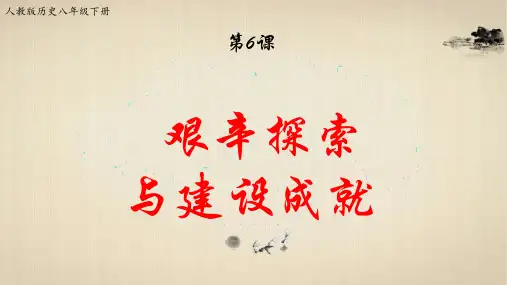 人教版历史八年级下册
第6课
艰辛探索
与建设成就